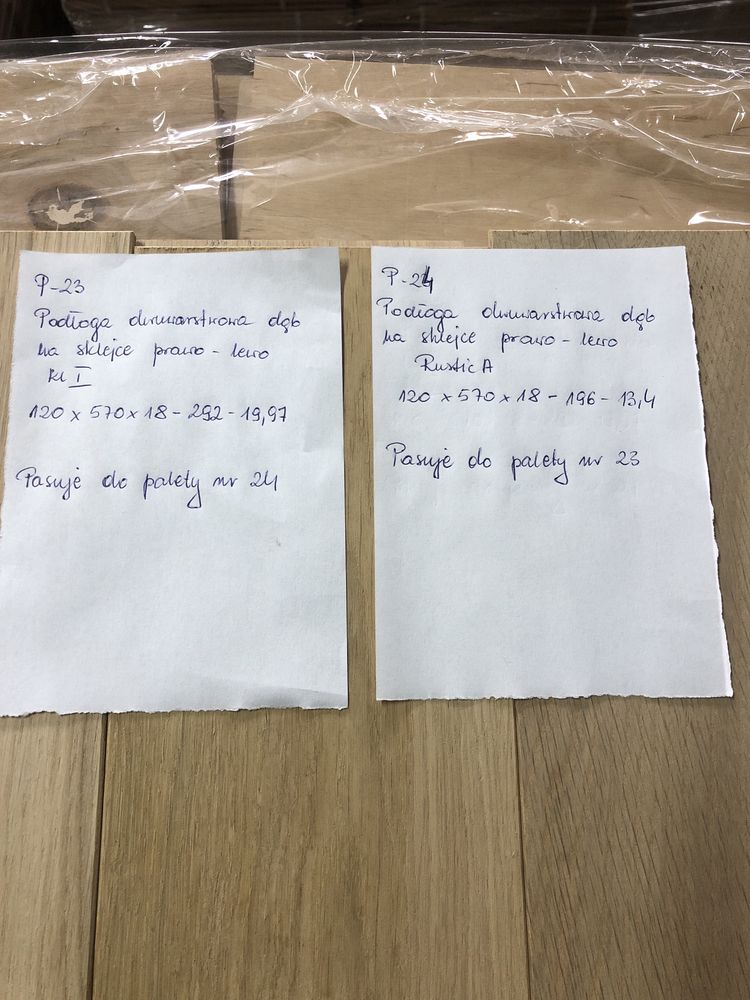 P-23
Podłoga dwuwarstwowa dąb
na sklejce prawo - lewo
kl I
120 x 570 x 18 - 292 - 19,97
Pasuje do palety nr 24
P-24
Podłoga dwuwarstwowa dąb
na sklejce prawo - lewo
Rustic A
120 x 570 x 18 - 196 - 13,4
Pasuje do palety nr 23